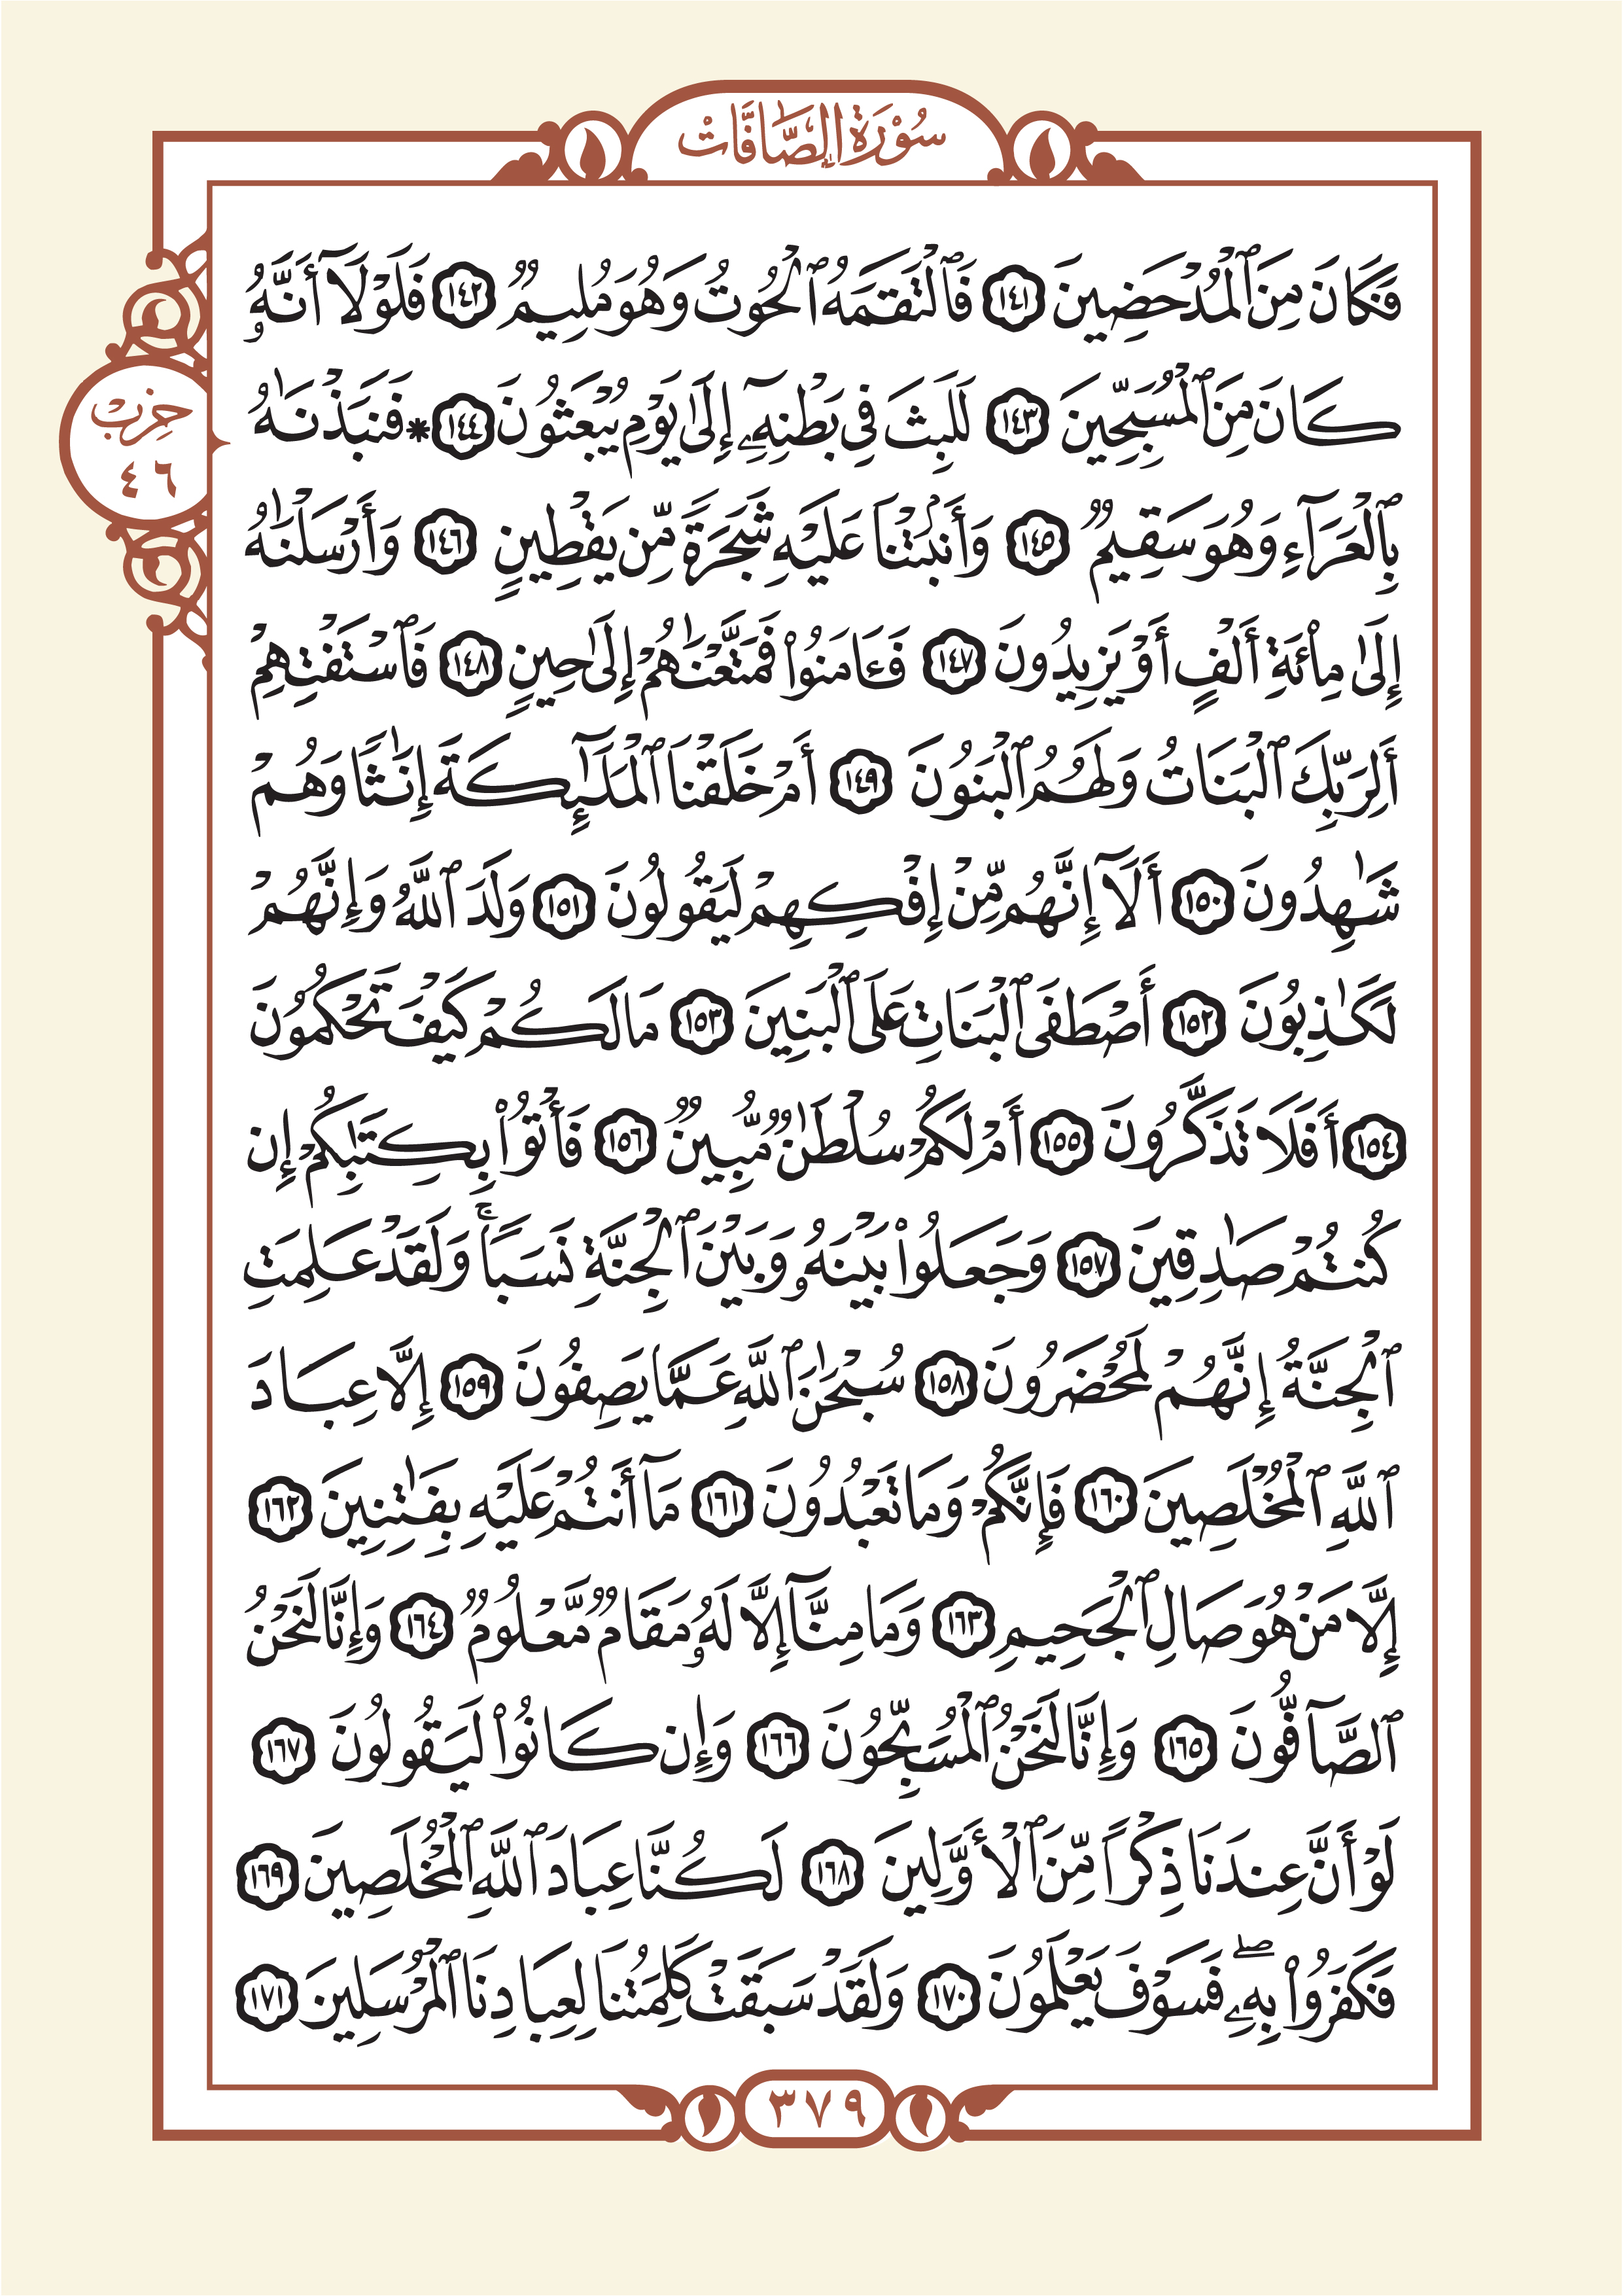 سُوْرَةُ الصَّافَّات
فَكَانَ مِنَ ٱلْمُدْحَضِينَ ١٤١ فَٱلْتَقَمَهُ ٱلْحُوتُ وَهُوَ مُلِيمٌ ١٤٢ فَلَوْلَآ أَنَّهُۥ
كَانَ مِنَ ٱلْمُسَبِّحِينَ ١٤٣ لَلَبِثَ فِى بَطْنِهِۦٓ إِلَىٰ يَوْمِ يُبْعَثُونَ ١٤٤ * فَنَبَذْنَٰهُ
حِزِبْ
٤٦
بِٱلْعَرَآءِ وَهُوَ سَقِيمٌ ١٤٥ وَأَنۢبَتْنَا عَلَيْهِ شَجَرَةً مِّن يَقْطِينٍ ١٤٦ وَأَرْسَلْنَٰهُ
إِلَىٰ مِا۟ئَةِ أَلْفٍ أَوْ يَزِيدُونَ ١٤٧ فَـَٔامَنُوا۟ فَمَتَّعْنَٰهُمْ إِلَىٰ حِينٍ ١٤٨ فَٱسْتَفْتِهِمْ
أَلِرَبِّكَ ٱلْبَنَاتُ وَلَهُمُ ٱلْبَنُونَ ١٤٩ أَمْ خَلَقْنَا ٱلْمَلَٰٓئِكَةَ إِنَٰثًا وَهُمْ
شَٰهِدُونَ ١٥٠ أَلَآ إِنَّهُم مِّنْ إِفْكِهِمْ لَيَقُولُونَ ١٥١ وَلَدَ ٱللَّهُ وَإِنَّهُمْ
لَكَٰذِبُونَ ١٥٢ أَصْطَفَى ٱلْبَنَاتِ عَلَى ٱلْبَنِينَ ١٥٣ مَا لَكُمْ كَيْفَ تَحْكُمُونَ
١٥٤ أَفَلَا تَذَكَّرُونَ ١٥٥ أَمْ لَكُمْ سُلْطَٰنٌ مُّبِينٌ ١٥٦ فَأْتُوا۟ بِكِتَٰبِكُمْ إِن
كُنتُمْ صَٰدِقِينَ ١٥٧ وَجَعَلُوا۟ بَيْنَهُۥ وَبَيْنَ ٱلْجِنَّةِ نَسَبًا ۚ وَلَقَدْ عَلِمَتِ
ٱلْجِنَّةُ إِنَّهُمْ لَمُحْضَرُونَ ١٥٨ سُبْحَٰنَ ٱللَّهِ عَمَّا يَصِفُونَ ١٥٩ إِلَّا عِبَادَ
ٱللَّهِ ٱلْمُخْلَصِينَ ١٦٠ فَإِنَّكُمْ وَمَا تَعْبُدُونَ ١٦١ مَآ أَنتُمْ عَلَيْهِ بِفَٰتِنِينَ ١٦٢
إِلَّا مَنْ هُوَ صَالِ ٱلْجَحِيمِ ١٦٣ وَمَا مِنَّآ إِلَّا لَهُۥ مَقَامٌ مَّعْلُومٌ ١٦٤ وَإِنَّا لَنَحْنُ
ٱلصَّآفُّونَ ١٦٥ وَإِنَّا لَنَحْنُ ٱلْمُسَبِّحُونَ ١٦٦ وَإِن كَانُوا۟ لَيَقُولُونَ ١٦٧
لَوْ أَنَّ عِندَنَا ذِكْرًا مِّنَ ٱلْأَوَّلِينَ ١٦٨ لَكُنَّا عِبَادَ ٱللَّهِ ٱلْمُخْلَصِينَ ١٦٩
فَكَفَرُوا۟ بِهِۦ ۖ فَسَوْفَ يَعْلَمُونَ ١٧٠ وَلَقَدْ سَبَقَتْ كَلِمَتُنَا لِعِبَادِنَا ٱلْمُرْسَلِينَ ١٧١
٣٧٩